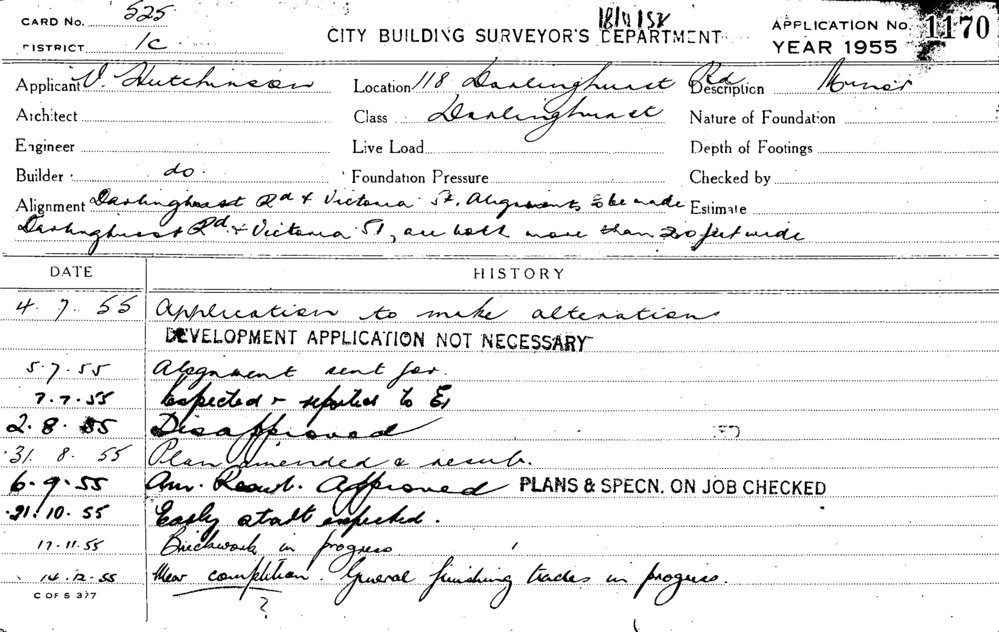 CARD No. 525
DISTRICT 1c
18/11/58
CITY BUILDING SURVEYOR'S DEPARTMENT
APPLICATION No. 1170
YEAR 1955
Applicant V. Hutchinson Location 118 Darlinghurst Rd Description Minor
Architect Class Darlinghurst Nature of Foundation
Engineer Live Load Depth of Footings
Builder do. Foundation Pressure Checked by
Alignment Darlinghurst Rd & Victoria St. Alignments to be made Estimate
Darlinghurst Rd. & Victoria St, are both more than 20 feet wide
DATE HISTORY
4. 7. 55 Application to make alterations
DEVELOPMENT APPLICATION NOT NECESSARY
5.7.55 Alignment sent for.
7.7.55 Inspected & reported to
2. 8. 55 Disapproved
31. 8. 55 Plan amended & resub.
6. 9. 55 Am. Resub. Approved PLANS & SPECN. ON JOB CHECKED
21. 10. 55 Early start expected.
17.11.55 Brickwork in progress
14.12.55 Near completion. General finishing trades in progress.
?
C OF S 377